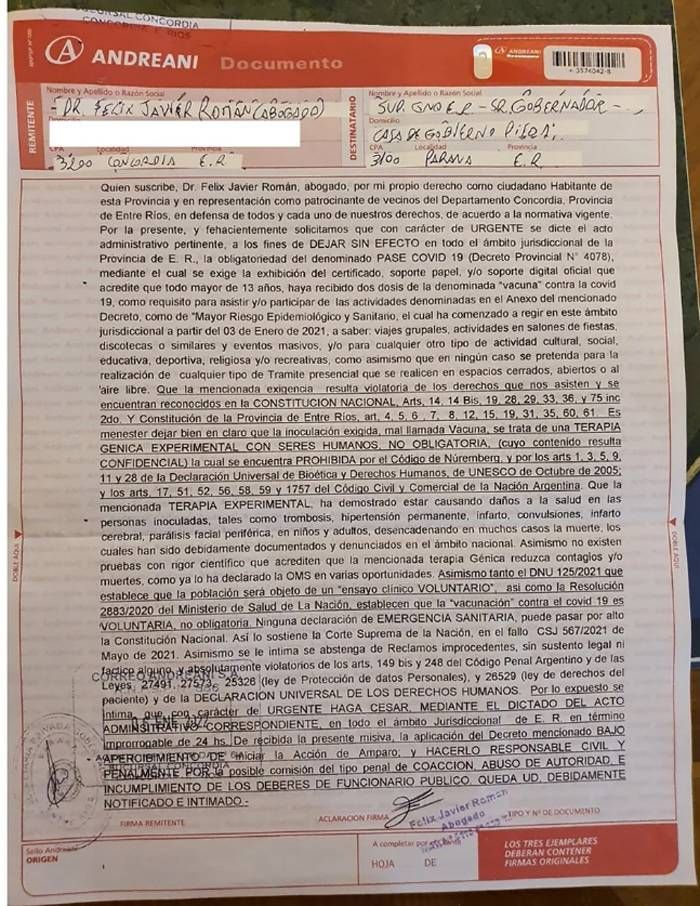 SUCURSAL CONCORDIA
CONCORDIA E. RIOS
ANDREANI Documento
ANDREANI
+ 3576042-8
REMITENTE
Nombre y Apellido o Razón Social
DR. FELIX JAVIER ROMAN (ABOGADO)
Domicilio
CPA Localidad Provincia
3200 CONCORDIA E.R
DESTINATARIO
Nombre y Apellido o Razón Social
SUP. GNO E.R - SR. GOBERNADOR -
Domicilio
CASA DE GOBIERNO
CPA Localidad Provincia
3100 PARANA E.R
Quien suscribe, Dr. Felix Javier Román, abogado, por mi propio derecho como ciudadano Habitante de
esta Provincia y en representación como patrocinante de vecinos del Departamento Concordia, Provincia
de Entre Ríos, en defensa de todos y cada uno de nuestros derechos, de acuerdo a la normativa vigente.
Por la presente, y fehacientemente solicitamos que con carácter de URGENTE se dicte el acto
administrativo pertinente, a los fines de DEJAR SIN EFECTO en todo el ámbito jurisdiccional de la
Provincia de E. R., la obligatoriedad del denominado PASE COVID 19 (Decreto Provincial N° 4078),
mediante el cual se exige la exhibición del certificado, soporte papel, y/o soporte digital oficial que
acredite que todo mayor de 13 años, haya recibido dos dosis de la denominada "vacuna" contra la covid
19, como requisito para asistir y/o participar de las actividades denominadas en el Anexo del mencionado
Decreto, como de "Mayor Riesgo Epidemiológico y Sanitario, el cual ha comenzado a regir en este ámbito
jurisdiccional a partir del 03 de Enero de 2021, a saber: viajes grupales, actividades en salones de fiestas,
discotecas o similares y eventos masivos, y/o para cualquier otro tipo de actividad cultural, social,
educativa, deportiva, religiosa y/o recreativas, como asimismo que en ningún caso se pretenda para la
realización de cualquier tipo de Tramite presencial que se realicen en espacios cerrados, abiertos o al
aire libre. Que la mencionada exigencia resulta violatoria de los derechos que nos asisten y se
encuentran reconocidos en la CONSTITUCION NACIONAL, Arts, 14, 14 Bis, 19, 28, 29, 33, 36, y 75 inc
2do. Y Constitución de la Provincia de Entre Ríos, art, 4, 5, 6 , 7, 8, 12, 15, 19, 31, 35, 60, 61. Es
menester dejar bien en claro que la inoculación exigida, mal llamada Vacuna, se trata de una TERAPIA
GENICA EXPERIMENTAL CON SERES HUMANOS, NO OBLIGATORIA, (cuyo contenido resulta
CONFIDENCIAL) la cual se encuentra PROHIBIDA por el Código de Núremberg, y por los arts 1, 3, 5, 9,
11 y 28 de la Declaración Universal de Bioética y Derechos Humanos, de UNESCO de Octubre de 2005;
y los arts, 17, 51, 52, 56, 58, 59 y 1757 del Código Civil y Comercial de la Nación Argentina. Que la
mencionada TERAPIA EXPERIMENTAL, ha demostrado estar causando daños a la salud en las
personas inoculadas, tales como trombosis, hipertensión permanente, infarto, convulsiones, infarto
cerebral, parálisis facial periférica, en niños y adultos, desencadenando en muchos casos la muerte, los
cuales han sido debidamente documentados y denunciados en el ámbito nacional. Asimismo no existen
pruebas con rigor científico que acrediten que la mencionada terapia Génica reduzca contagios y/o
muertes, como ya lo ha declarado la OMS en varias oportunidades. Asimismo tanto el DNU 125/2021 que
establece que la población será objeto de un "ensayo clínico VOLUNTARIO", así como la Resolución
2883/2020 del Ministerio de Salud de La Nación, establecen que la "vacunación" contra el covid 19 es
VOLUNTARIA, no obligatoria. Ninguna declaración de EMERGENCIA SANITARIA, puede pasar por alto
la Constitución Nacional. Así lo sostiene la Corte Suprema de la Nación, en el fallo CSJ 567/2021 de
Mayo de 2021. Asimismo se le intima se abstenga de Reclamos improcedentes, sin sustento legal ni
factico alguno, y absolutamente violatorios de los arts, 149 bis y 248 del Código Penal Argentino y de las
Leyes 27491, 27573, 25326 (ley de Protección de datos Personales), y 26529 (ley de derechos del
paciente) y de la DECLARACION UNIVERSAL DE LOS DERECHOS HUMANOS. Por lo expuesto se
intima, que con carácter de URGENTE HAGA CESAR, MEDIANTE EL DICTADO DEL ACTO
ADMINISTRATIVO CORRESPONDIENTE, en todo el ámbito Jurisdiccional de E. R. en término
improrrogable de 24 hs. De recibida la presente misiva, la aplicación del Decreto mencionado BAJO
APERCIBIMIENTO DE iniciar la Acción de Amparo; y HACERLO RESPONSABLE CIVIL Y
PENALMENTE POR la posible comisión del tipo penal de COACCION, ABUSO DE AUTORIDAD, E
INCUMPLIMIENTO DE LOS DEBERES DE FUNCIONARIO PUBLICO. QUEDA UD, DEBIDAMENTE
NOTIFICADO E INTIMADO.-
CORREO ANDREANI S.A.
ENE 2022
SUCURSAL CONCORDIA
DOBLE AQUI
DOBLE AQUI
Felix Javier Román
Abogado
FIRMA REMITENTE
ACLARACION FIRMA
TIPO Y Nº DE DOCUMENTO
Sello Andreani
ORIGEN
A completar por
HOJA DE
LOS TRES EJEMPLARES
DEBERAN CONTENER
FIRMAS ORIGINALES